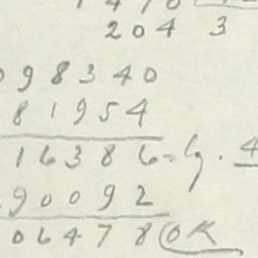 1 4 7 0
2 0 4 3
0 9 8 3 4 0
8 1 9 5 4
1 6 3 8 6 = lg. 4
9 0 0 9 2
0 6 4 7 8 OK